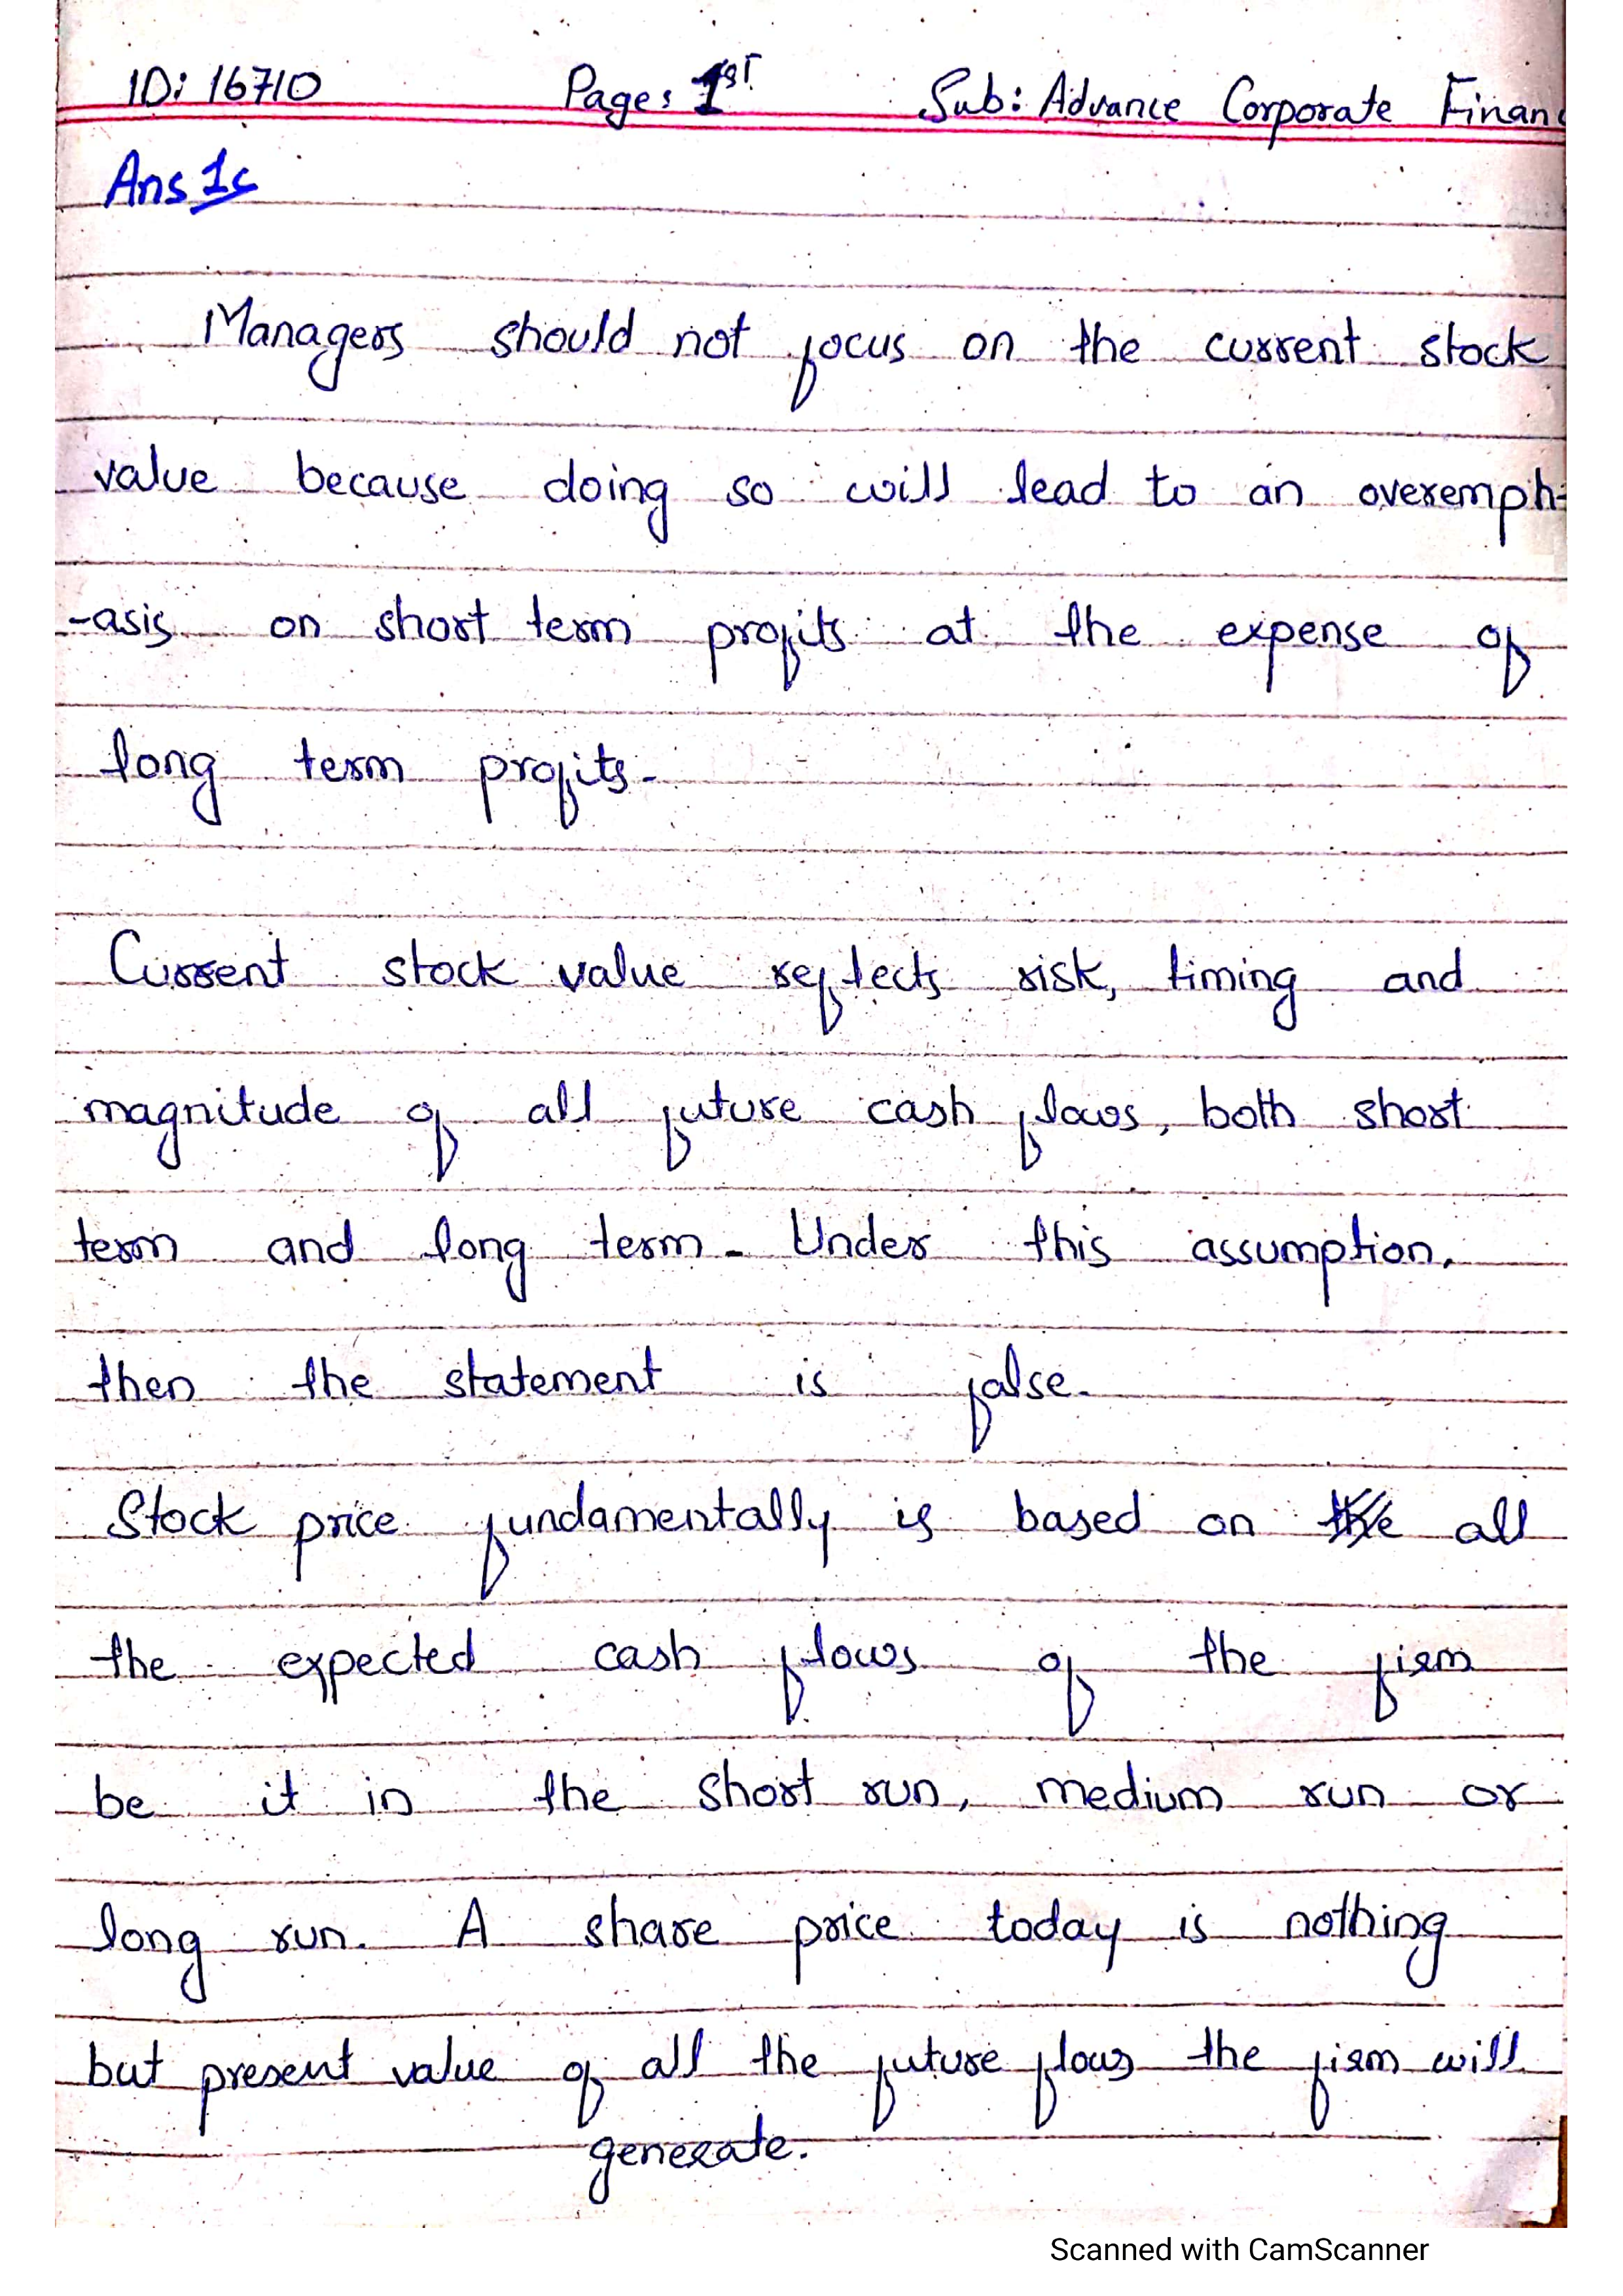 ID: 16710 Page: 1ST Sub: Advance Corporate Financ
Ans 1:
Managers should not focus on the current stock
value because doing so will lead to an overemph-
-asis on short term profits at the expense of
long term profits.
Current stock value reflects risk, timing and
magnitude of all future cash flows, both short
term and long term. Under this assumption,
then the statement is false.
Stock price fundamentally is based on all
the expected cash flows of the firm
be it in the short run, medium run or
long run. A share price today is nothing
but present value of all the future flows the firm will
generate.
Scanned with CamScanner